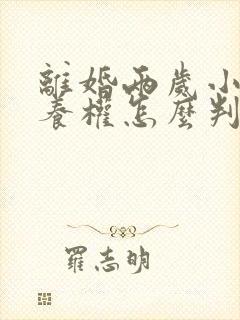 離婚兩歲小
養權怎麼判
羅志明